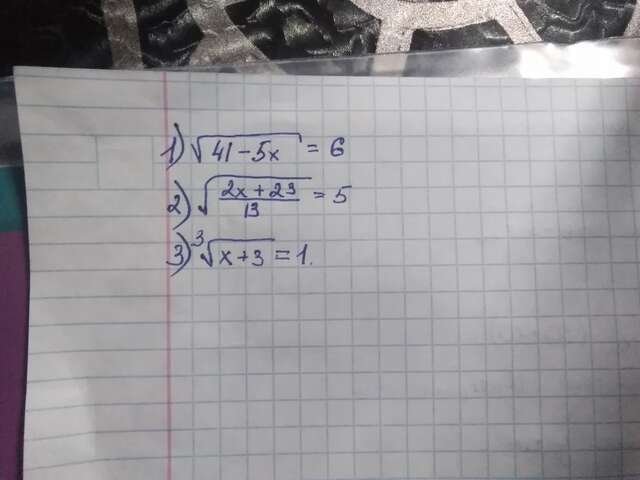 1) √(41-5x) = 6
2) √((2x+23)/13) = 5
3) ³√(x+3) = 1.